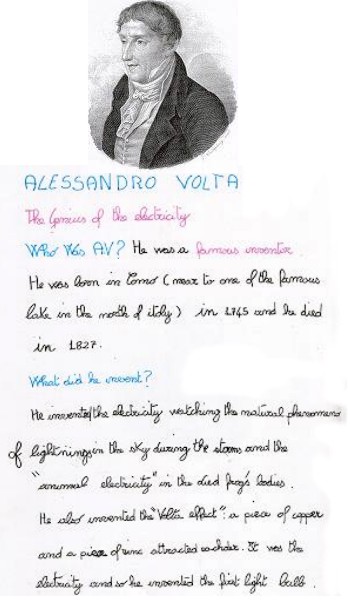 ALESSANDRO VOLTA
The Genius of the electricity
Who Was A.V? He was a famous inventor.
He was born in Como (near to one of the famous
lake in the north of italy) in 1745 and he died
in 1827.
What did he invent?
He invented the electricity watching the natural phenomena
of lightnings in the sky during the storms and the
"animal electricity" in the died frog's bodies.
He also invented the "Volta effect": a piece of copper
and a piece of zinc attracted eachother. It was the
electricity and so he invented the first light bulb.